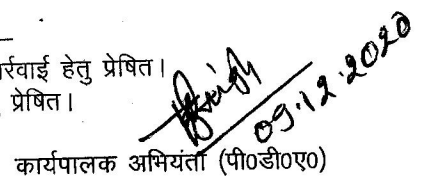 र्रवाई हेतु प्रेषित।
प्रेषित।
09.12.2020
कार्यपालक अभियंता (पी0डी0ए0)